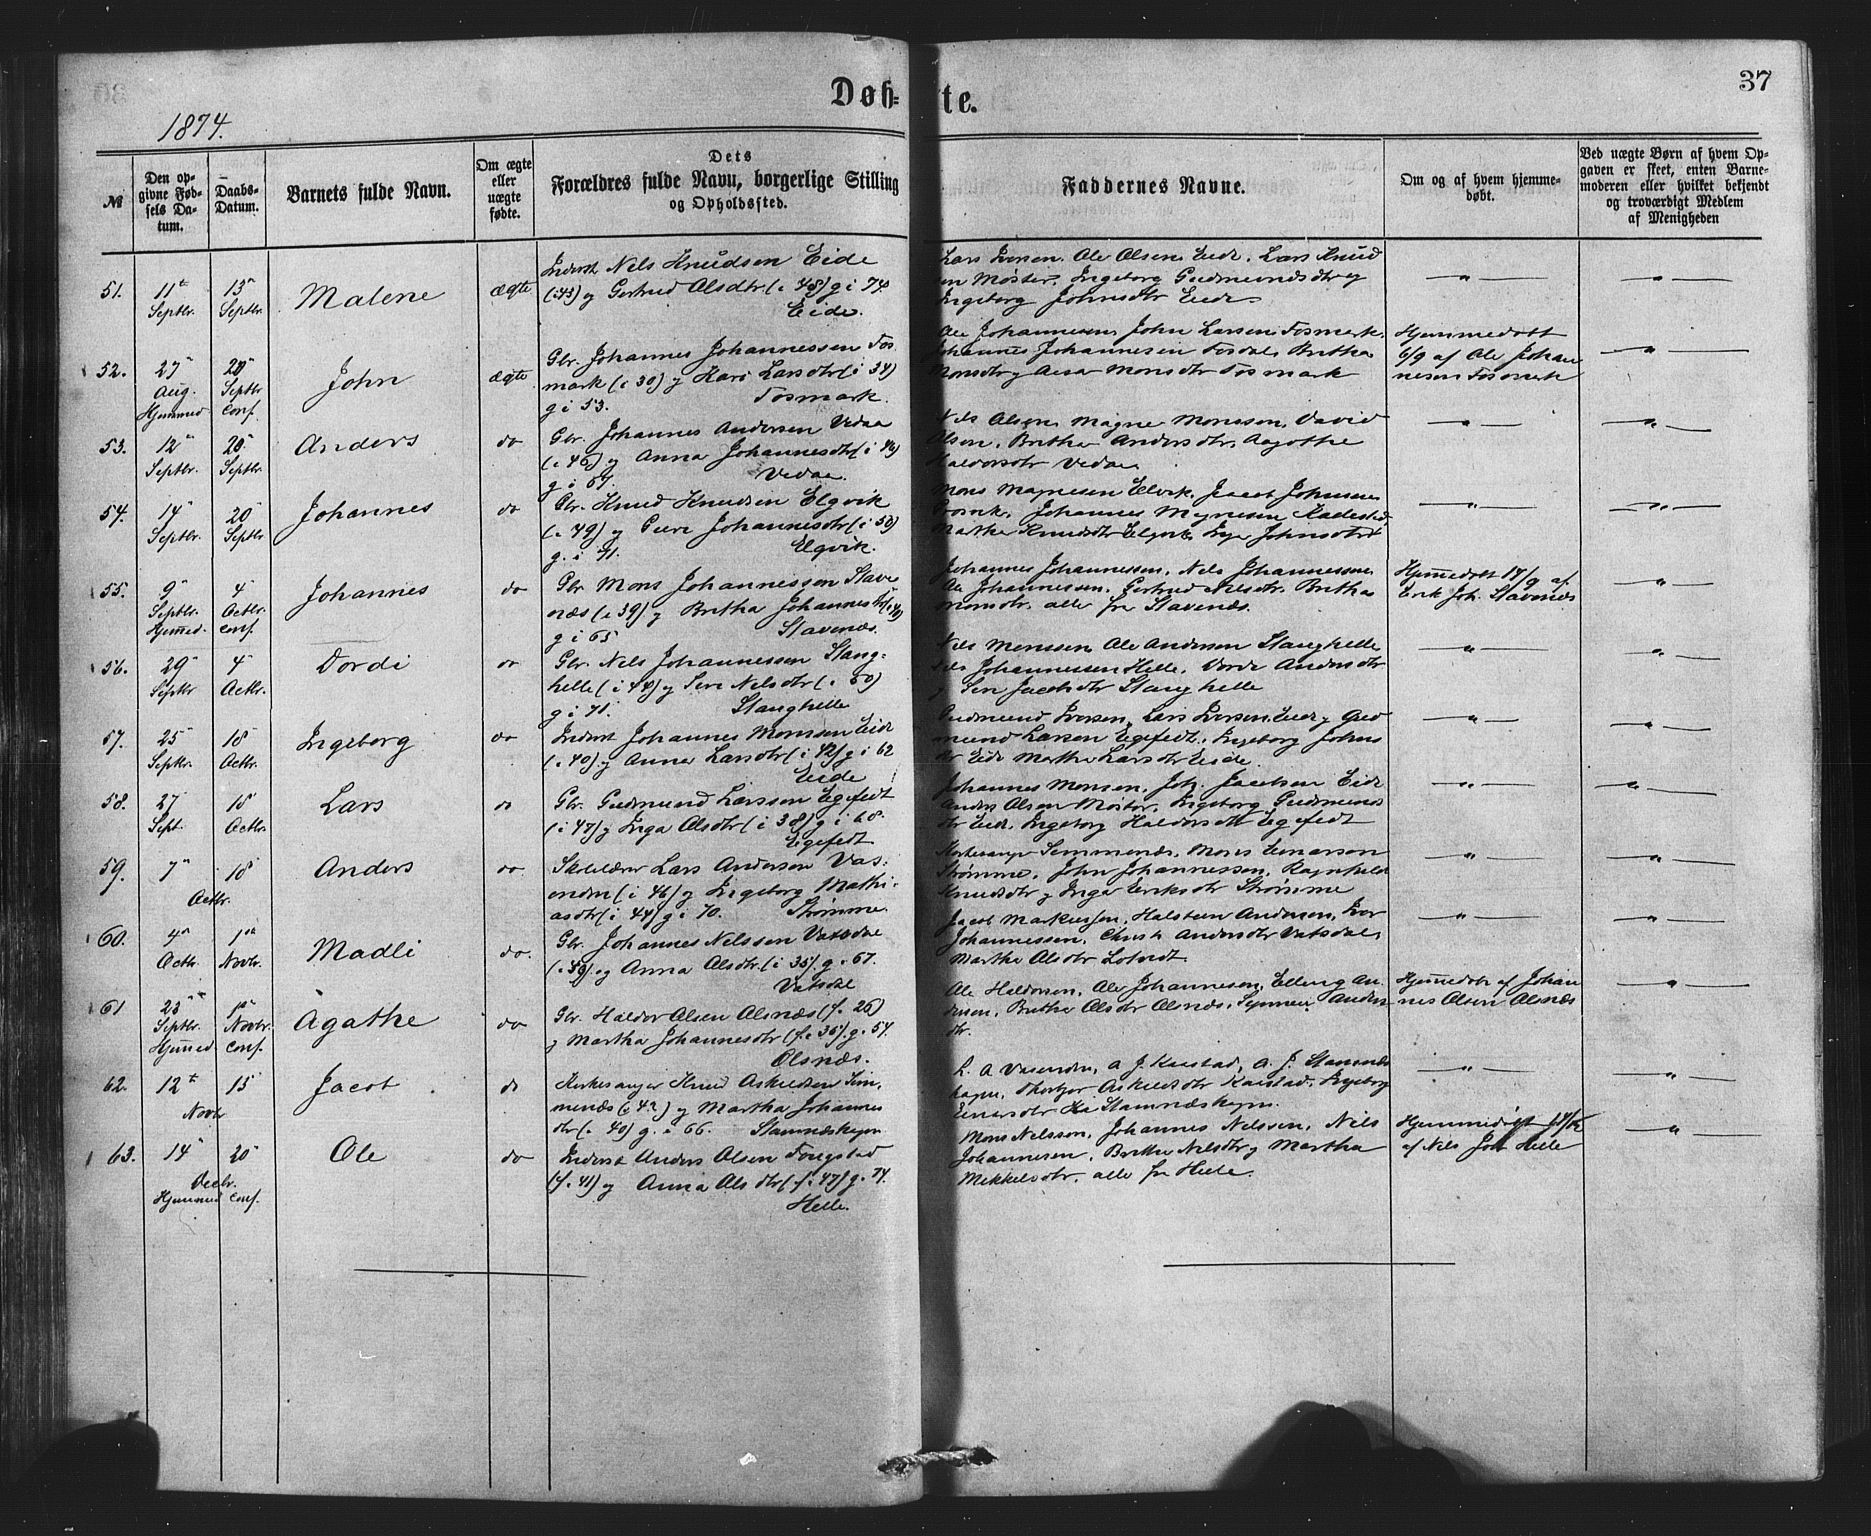 37
Døb= te.
1874.
№
Den op-
givne Fød-
sels Da-
tum.
Daabs-
Datum.
Barnets fulde Navn.
Om ægte
eller
uægte
fødte.
Dets
Forældres fulde Navn, borgerlige Stilling
og Opholdssted.
Faddernes Navne.
Om og af hvem hjemme-
døbt.
Ved uægte Børn af hvem Op-
gaven er skeet, enten Barne-
moderen eller hvilket bekjendt
og troværdigt Medlem
af Menigheden
51. 11 Septbr. 13 Septbr. Malene ægte
Inderst Nels Knudsen Eide
(i 43) og Gertrud Olsdtr (i 48) g i 74.
Eide.
Lars Iversen, Ole Olsen Eide, Lars Knud
sen Møster, Ingeborg Gudmundsdtr og
Ingeborg Johnsdtr Eide
52. 27 Aug. Hjemmed. Septbr conf. John ægte
Gbr. Johannes Johannessen Fos
mark (i 30) og Kari Larsdtr (i 34)
g i 53. Fosmark.
Ole Johannesen, John Larsen Fosmark,
Johannes Johannesen Fosdal, Britha
Monsdtr og Monsdtr Fosmark
Hjemmedøbt
6/9 af Ole Johan
nesen Fosmark
53. 12 Septbr. 20 Septbr Anders do
Gbr. Johannes Andersen Vedaa
(i 46) og Anna Johannesdtr (i 46)
g i 67. Vedaa.
Nils Olsen, Magne Monsson, David
Olsen, Britha Andersdtr, Aagothe
Haldorsdtr Vedaa
54. 14 Septbr. 20 Septbr Johannes do
Gbr. Knud Knudsen Elgvik
(i 49) og Johannesdtr (i 50)
g. i 71. Elgvik.
Mons Magnesen Elvik, Jacob Johnsen
Johannes Magnesen
Martha Knudsdtr Elgvik, Johnsdtr
55. 9 Septbr. Hjemmed. 4 Octbr. conf. Johannes do
Gbr Mons Johannesson Stave
næs (i 39) og Britha Johannesdtr (i 40)
g i 65 Stavenæs.
Johannes Johannessen, Nils Johannessen,
Ole Johannessen, Gertrud Nilsdtr, Britha
Monsdtr, alle fra Stavenæs.
Hjemmedøbt 17/9 af
Erik Joh. Stavenæs
56. 29 Septbr 4 Octbr. Dordi do
Gbr. Nels Johannessen Stang-
helle (i 44) og Siri Nelsdtr (i 50)
g i 71. Stanghelle
Nils Monssen, Ole Andersen Stanghelle
Nils Johannessen Helle, Andersdtr
og Siri Jacobsdtr Stanghelle
57. 25 Septbr. 18 Octbr. Ingeborg do
Inderst Johannes Monssen Eide
(i 40) og Anna Larsdtr (i 42) g i 62
Eide
Gudmund Iversen, Lars Iversen Eide, Gud
mund Larsen Egefedt, Ingeborg Johns
dtr Eide, Martha Larsdtr Eide.
58. 27 Sept. 18 Octbr. Lars do
Gbr. Gudmund Larssen Egefedt
(i 47) og Inga Olsdtr (i 38) g i 68.
Egefedt
Johannes Monsen, Joh. Jacobsen Eide
Anders Olsen Møster, Ingeborg Gudmunds
dtr Eide, Ingeborg Haldorsdtr Egefedt
59. 7 18 Octbr. Anders do
Skolelærer Lars Anderson Vas-
enden (i 46) og Ingeborg Mathi-
asdtr (i 44) g i 70. Strømme.
Kirkesanger Simmenæs, Mons Einarson
Strømme, John Johannessen, Ragnhild
Knudsdtr og Inga Eriksdtr Strømme
60. 4 Octbr. 1 Novbr. Madli do.
Gbr. Johannes Nelssen Vatsdal
og Anna Olsdtr. (i 35) g. i 67.
Vatsdal
Jacob Markussen, Halsteen Andersen, Iver
Johannessen, Andersdtr Vatsdal,
Martha Olsdtr
61 23 Septbr. Hjemmed. 1 Novbr. conf. Agathe do
Gbr. Haldor Olsen Olsnæs (f. 26)
og Martha Johannesdtr (f. i 36) g. 57
Olsnæs.
Ole Haldorsen, Ole Johannesen, Elling An-
dersen, Britha Olsdtr Olsnæs, Synneva Anders
dtr.
Hjemmedøbt af Johan
nes Olsen Olsnæs
62. 12 15 Novbr Jacob do
Kirkesanger Knud Askildsen Sim
menæs (i 42) og Martha Johannes
dtr (i 40) g. i 66. Stamnæshagen
L. A. Vasenden, A. J. Kaistad, A. J. Stamnæs
hagen, Thorbjør Askildsdtr Kaistad, Ingeborg
Einarsdtr Stamnæshagen.
63. 14 20 Decbr. Hjemmed conf. Ole do
Inderst Anders Olsen Fongstad
(f. 41) og Anna Olsdtr (f. 47) g. 74.
Helle.
Mons Nelssen, Johannes Nelssen, Nils
Johannesen, Britha Nelsdtr og Martha
Mikkelsdtr, alle fra Helle.
Hjemmedøbt
af Nils Joh Helle